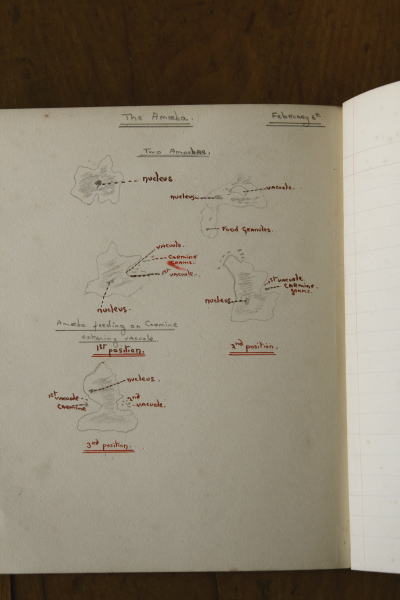 The Amoeba.
February 8th
Two Amoebae.
nucleus
nucleus
vacuole.
Food Granules.
vacuole.
Carmine
grains.
1st vacuole.
nucleus.
1st vacuole.
carmine
grains.
nucleus
Amoeba feeding on Carmine
entering vacuole.
1st position.
2nd position.
nucleus.
1st
vacuole
Carmine
2nd
vacuole.
3rd position.